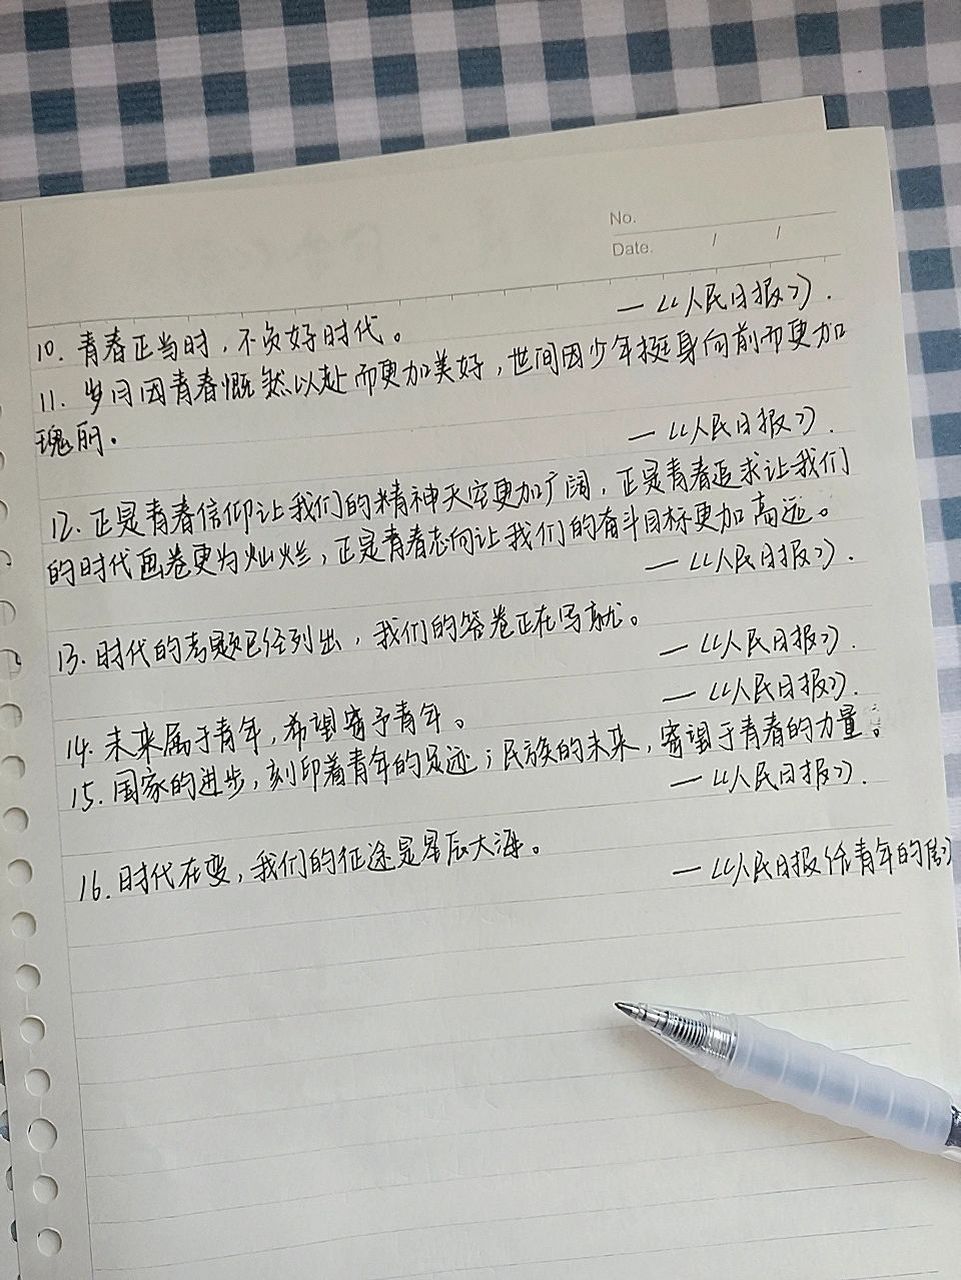 No.
Date. / /
10. 青春正当时,不负好时代。 —《人民日报》.
11. 岁月因青春慨然以赴而更加美好,世间因少年挺身向前而更加
瑰丽。 —《人民日报》.
12. 正是青春信仰让我们的精神天空更加广阔,正是青春追求让我们
的时代画卷更为灿烂,正是青春志向让我们的奋斗目标更加高远。
—《人民日报》.
13. 时代的考题已经列出,我们的答卷正在写就。
—《人民日报》.
14. 未来属于青年,希望寄予青年。 —《人民日报》.
15. 国家的进步,刻印着青年的足迹;民族的未来,寄望于青春的力量。
—《人民日报》.
16. 时代在变,我们的征途是星辰大海。
—《人民日报给青年的